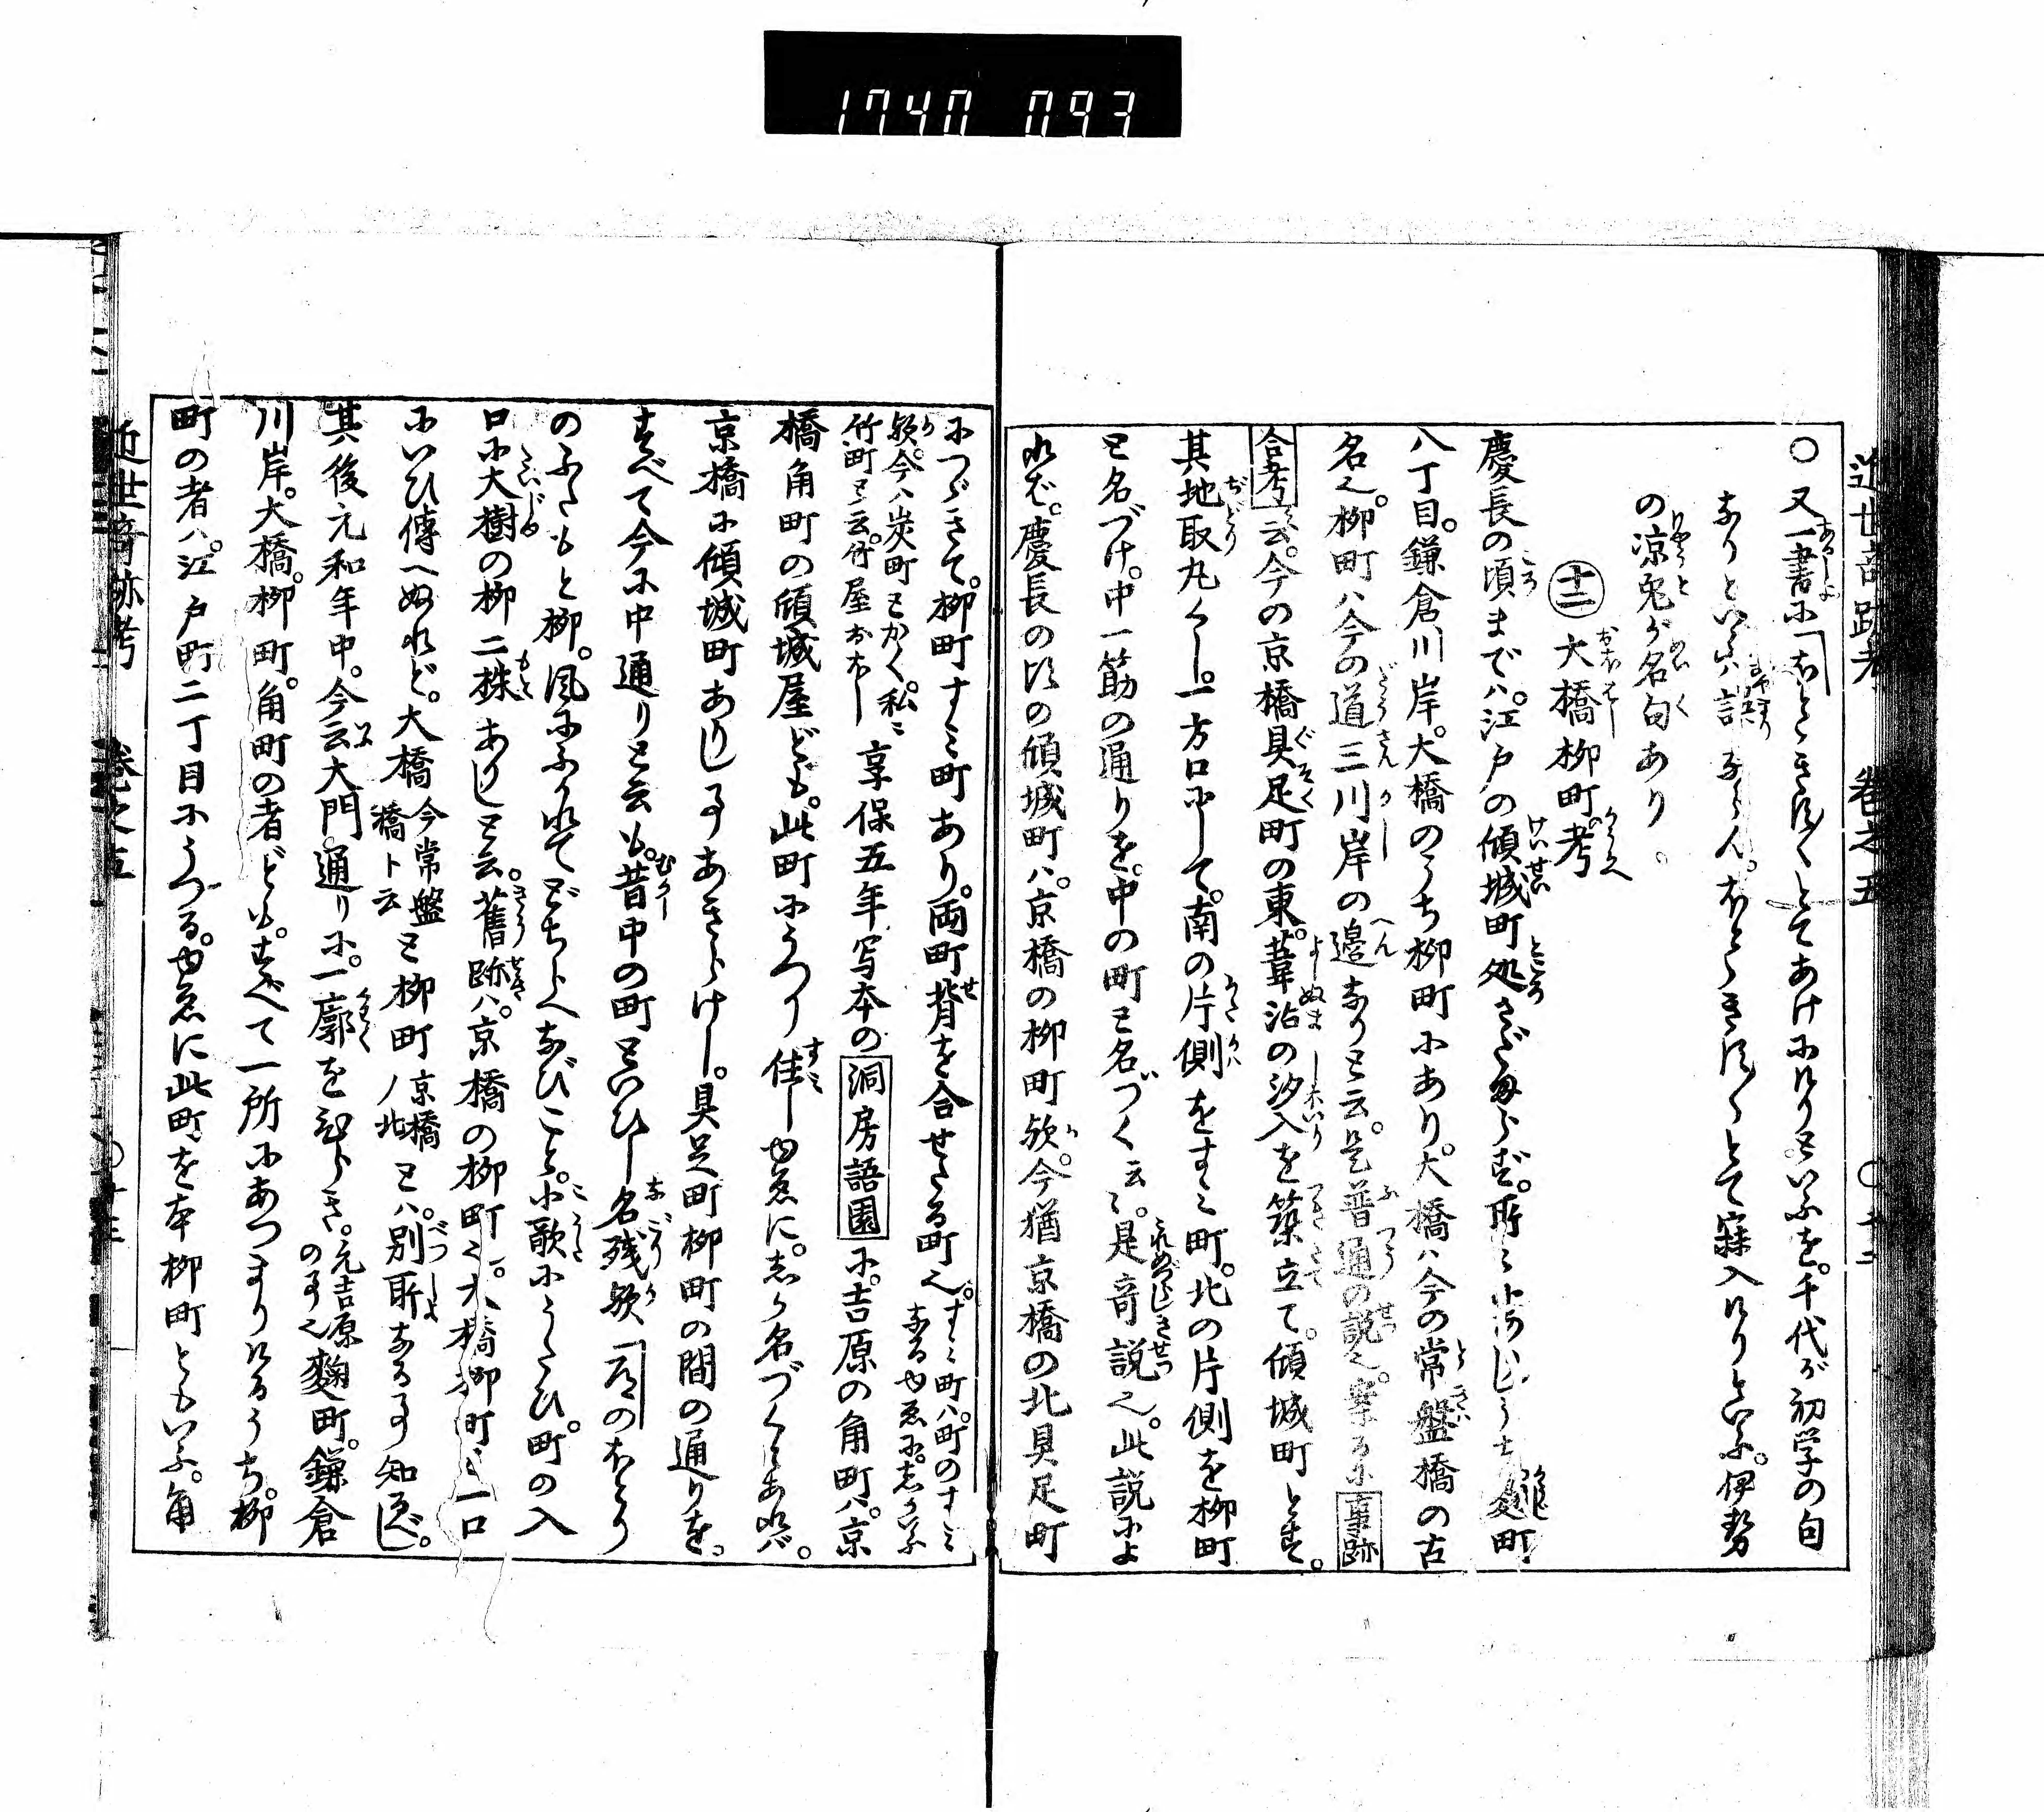 1740 093
近世奇跡考 巻之五 〇十二
〇又一書に「ほとゝぎす〳〵とてあけにけりといふを。千代が初学の句
なりといふハ誤ならん。ほとゝぎす〳〵とて寐入けりといふ。伊勢
の凉兎が名句あり。
十二 大橋柳町考
慶長の頃まで八。江戸の傾城町処さだまらず。所ゝにありしうち麹町
八丁目。鎌倉川岸。大橋のうち柳町にあり。大橋ハ今の常盤橋の古
名也。柳町ハ今の道三川岸の邊なりと云。是普通の説也。案るに事跡
合考云。今の京橋具足町の東。葦沼の汐入を築立て。傾城町とす。
其地取丸くし。一方口にして。南の片側をすミ町。北の片側を柳町
と名づけ。中一筋の通りを。中の町と名づく云ゝ。是奇説也。此説によ
れば。慶長の比の傾城町ハ。京橋の柳町歟。今猶京橋の北具足町
につゞきて。柳町すミ町あり。両町背を合せたる町也。すミ町ハ。町のすミなるゆゑに。しかいふ
歟。今ハ炭町とかく。私ニ竹町と云。竹屋おほし 享保五年写本の洞房語園に。吉原の角町ハ。京
橋角町の傾城屋ども。此町にうつり住しゆゑに。しか名づくとあれバ。
京橋に傾城町ありし事あきらけし。具足町柳町の間の通りを。
すべて今に中通りと云も。昔中の町といひし名残歟「
のふたもと柳。風にふかれてどちらへなびこと。小歌にうたひ。町の入
口に大樹の柳二株ありしと云。舊跡ハ。京橋の柳町也。大橋柳町と一口
にいひ傳へぬれど。大橋今常盤橋ト云と柳町京橋ノ北とハ。別所なる事知べし。
其後元和年中。今云大門通りに。一廓をひらき。元吉原の事也麹町。鎌倉
川岸。大橋。柳町。角町の者ども。すべて一所にあつまりけるうち。柳
町の者ハ。江戸町二丁目にうつる。ゆゑに此町を本柳町ともいふ。角
近世奇跡考 巻之五